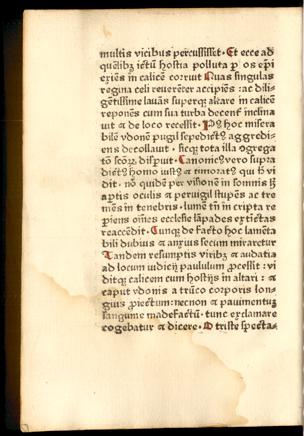 multis vicibus percussisset. Et ecce ad
quelibꝫ ictū hostia polluta ꝑ os epī
exiēs in calicē corruit Quas singulas
regina celi reverēter accipiēs: ac dili-
gētissime lavās superqꝫ altare in calicē
reponēs cum sua turba decent inclina
uit ⁊ de loco recessit. Post hoc misera
bilē vdonē pugil sepedictꝰ aggredi-
ens decollauit. sicqꝫ tota illa ogrega
tō disparuit. Canonicꝰ vero supra
dictꝰ homo iustꝰ ⁊ timoratꝰ qui vi
dit. nō quidē per visionē in somnis sꝫ
aptis oculis ⁊ peruigil stupēs ac tre
mēs in tenebris. lumē tn̄ in cripta re
piens oīnes ecclesie lāpades extīctas
reaccēdit. Cunqꝫ de facto hoc lamēta
bili dubius ⁊ anxius secum miraretur
Tandem resumptis viribꝫ ⁊ audatia
ad locum iudicij paululum ꝓcessit: vi
ditqꝫ calicem cum hostijs in altari: ⁊
caput vdonis a trūco corporis lon-
guis ꝓiectum: necnon ⁊ pauimentuꝫ
sanguine madefactū. tunc exclamare
cogebatur ⁊ dicere. O triste specta-